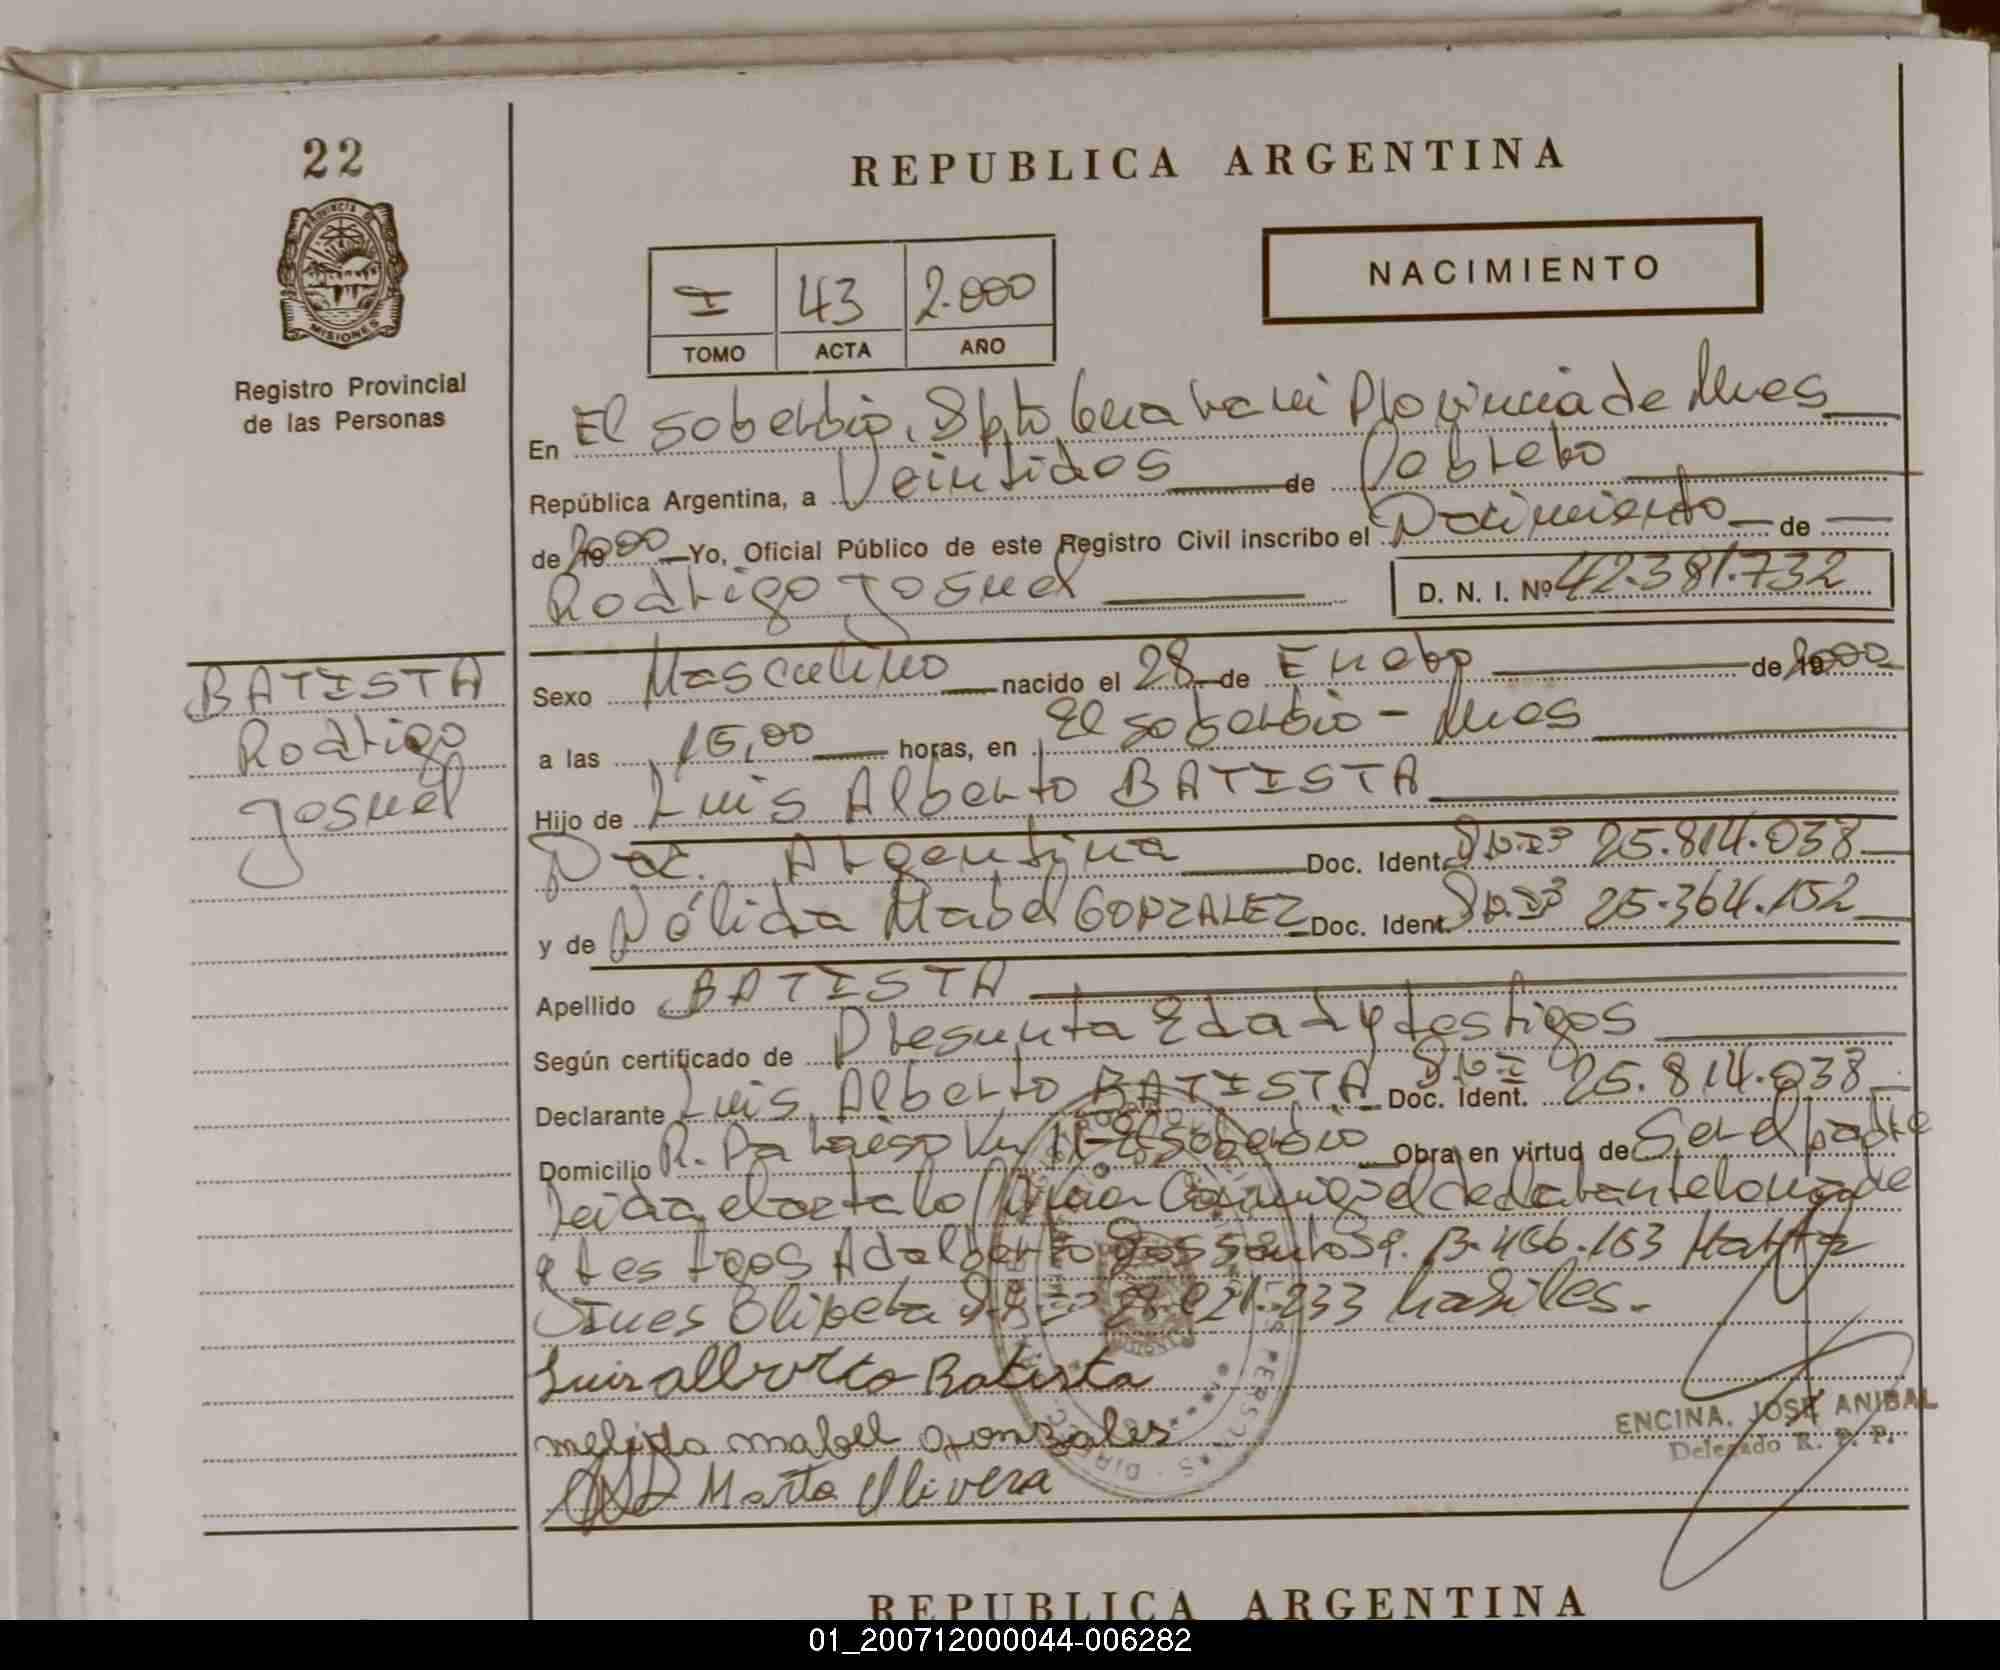 22
PROVINCIA DE
MISIONES
Registro Provincial
de las Personas
REPUBLICA ARGENTINA
NACIMIENTO
I 43 2.000
TOMO ACTA AÑO
En El soberbio, Dpto Guarani Provincia de Mnes
República Argentina, a Veintidos de Octubre
de 2000 Yo, Oficial Público de este Registro Civil inscribo el Nacimiento de
Rodrigo Josuel D. N. I. Nº 42.381.732
BATISTA
Rodrigo
Josuel
Sexo Masculino nacido el 28 de Enero de 2000
a las 15,00 horas, en El soberbio - Mnes
Hijo de Luis Alberto BATISTA
Nac. Argentina Doc. Ident. DNI Nº 25.814.038
y de Nélida Mabel GONZALEZ Doc. Ident. DNI Nº 25.364.152
Apellido BATISTA
Según certificado de Presunta Edad y testigos
Declarante Luis Alberto BATISTA Doc. Ident. DNI 25.814.038
Domicilio P. Paraiso Km 11 - El Soberbio Obra en virtud de Ser el padre
Leida el acta lo
y testigos Adalberto Dos Santos 466.163 Marta
Ines Olivera 233 habiles.-
Luis alberto Batista
melida mabel gonzales
Marta Olivera
ENCINA, JOSE ANIBAL
Delegado R. P. P.
REPUBLICA ARGENTINA
01_200712000044-006282